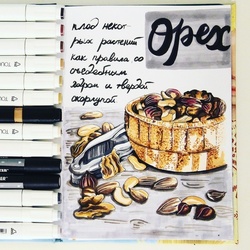 Орех
плод некот-
рых растений
как правила со
съедобным
ядром и твердой
скорлупой
TOU